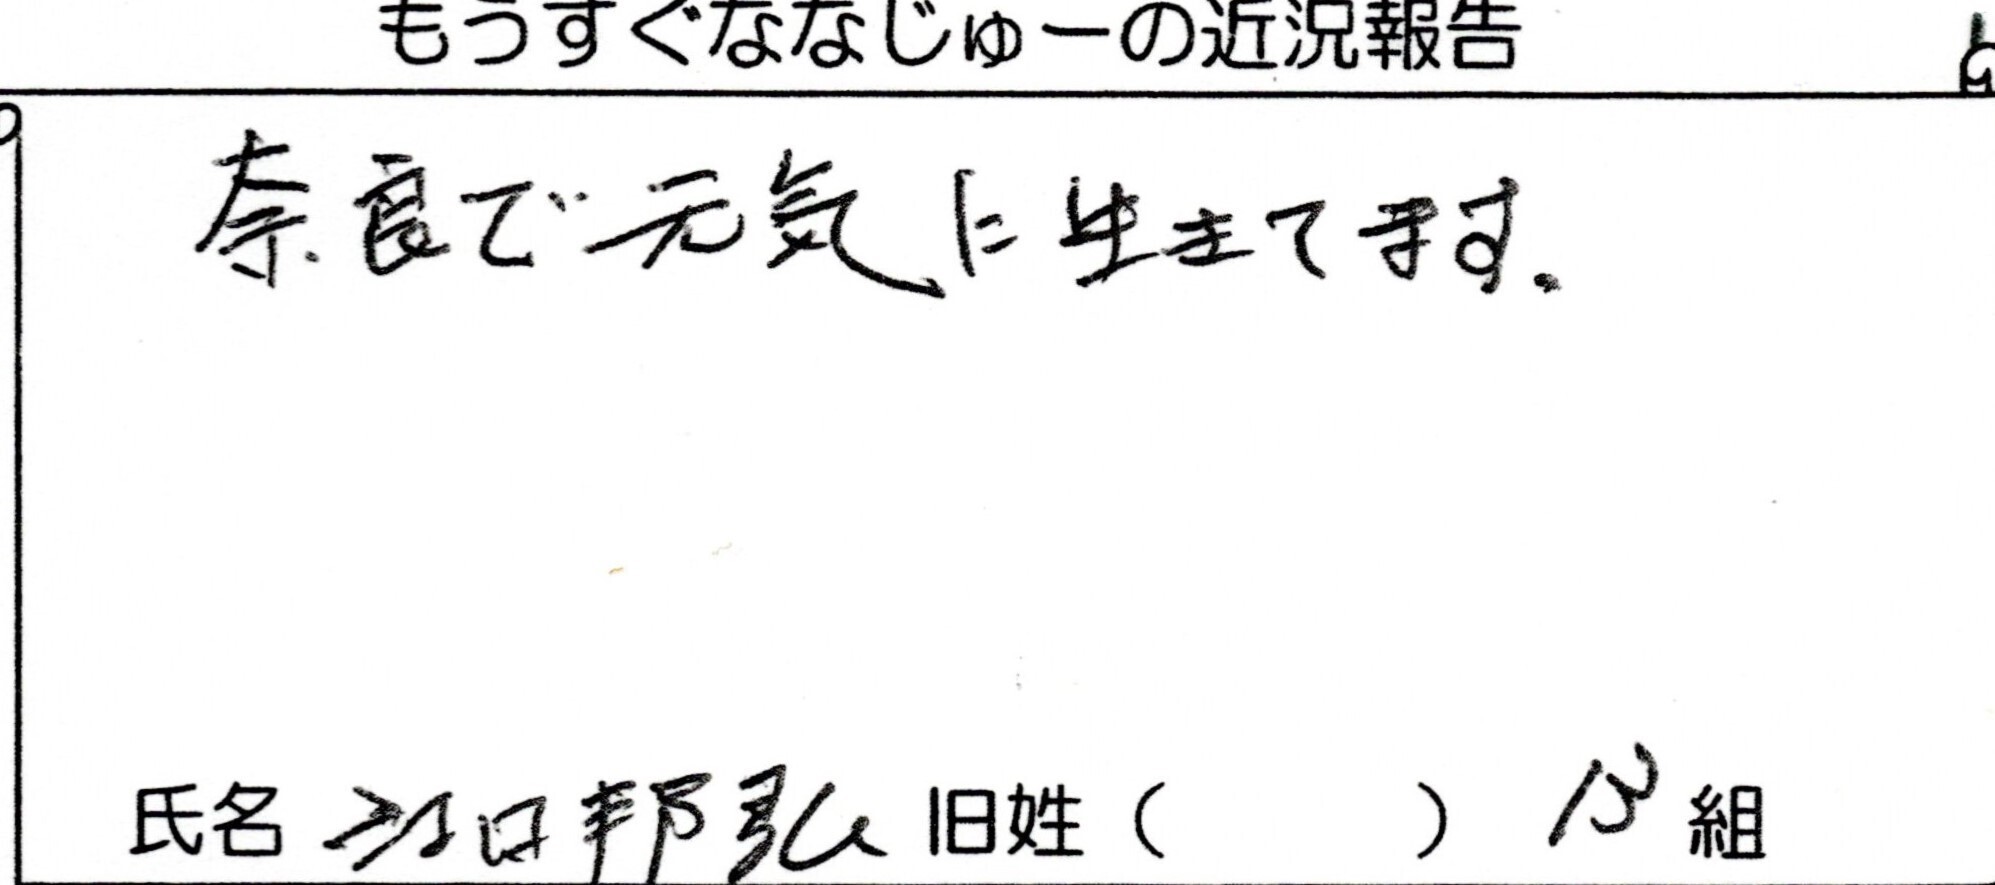 もうすぐななじゅーの近況報告
奈良で元気に生きてます.
氏名 江口邦弘 旧姓（ ） B 組